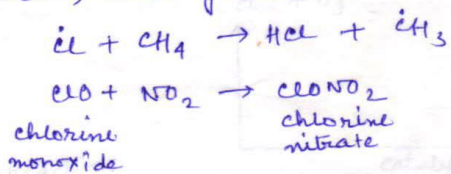 ĊL + CH₄ → HCL + ĊH₃
CLO + NO₂ → CLONO₂
chlorine monoxide
chlorine nitrate